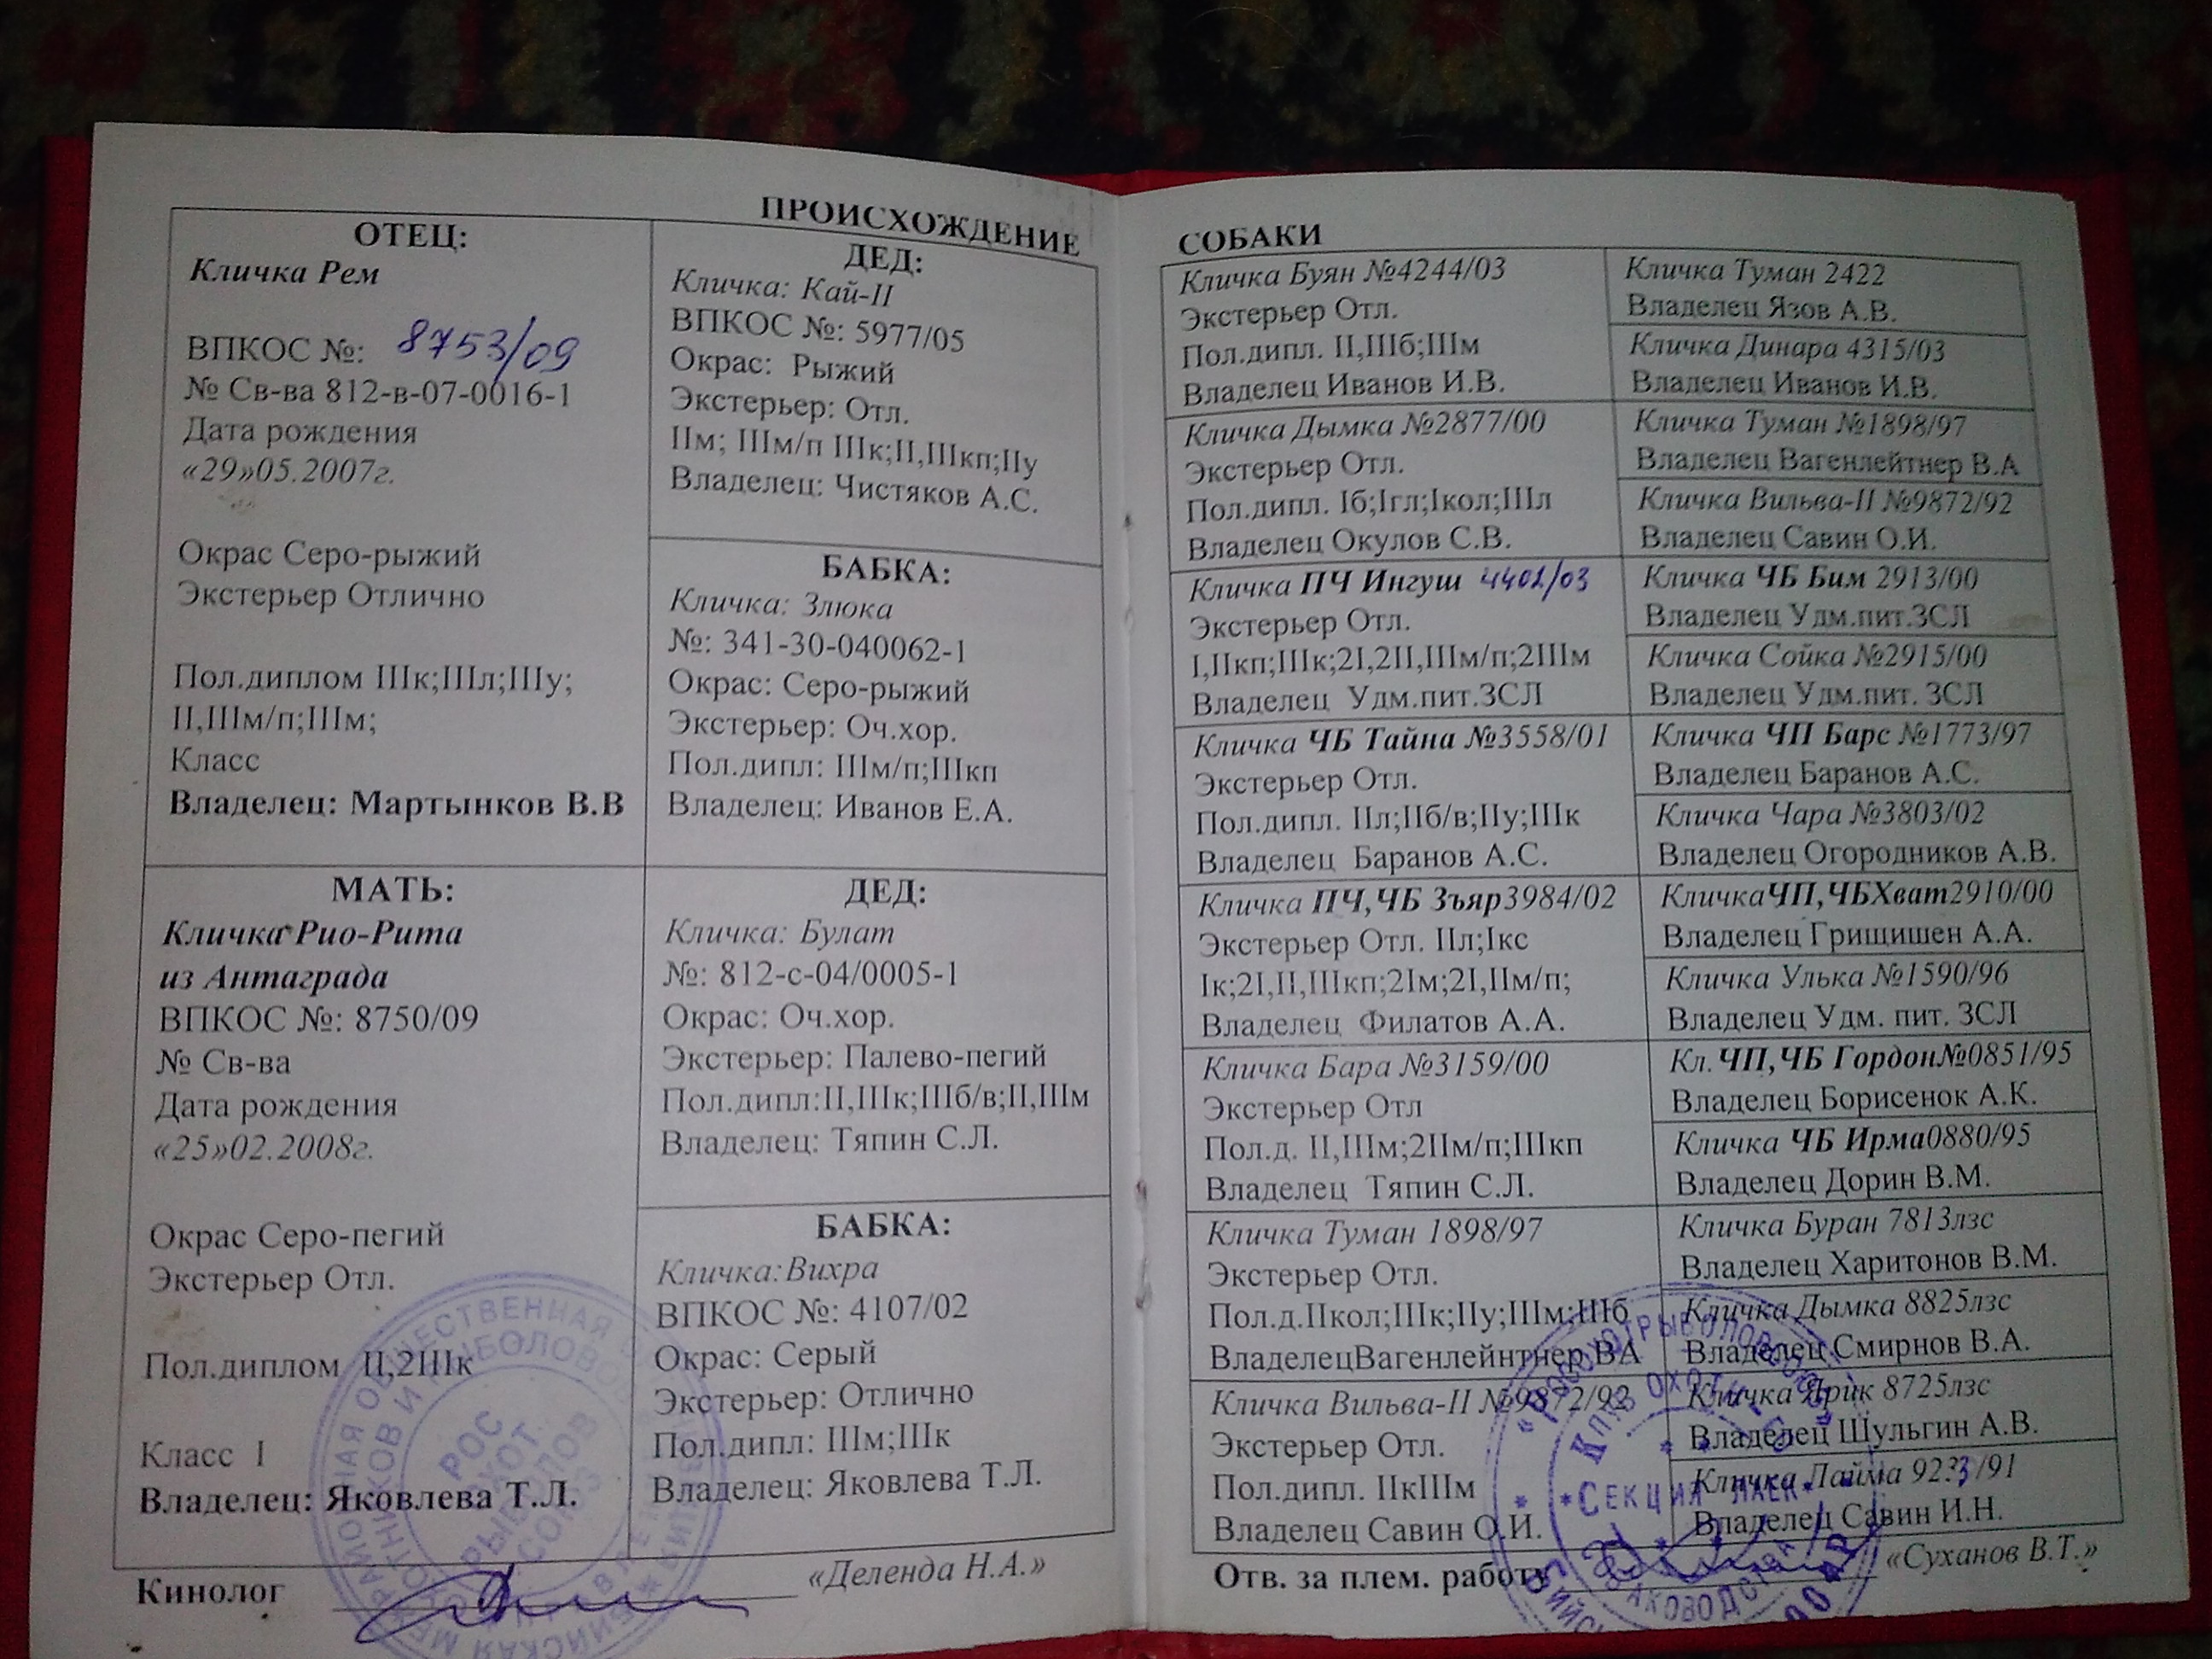 ПРОИСХОЖДЕНИЕ
ОТЕЦ:
Кличка Рем
ВПКОС №: 8753/09
№ Св-ва 812-в-07-0016-1
Дата рождения
«29»05.2007г.
Окрас Серо-рыжий
Экстерьер Отлично
Пол.диплом IIIк;IIIл;IIIу;
II,IIIм/п;IIIм;
Класс
Владелец: Мартынков В.В
МАТЬ:
Кличка Рио-Рита
из Антаграда
ВПКОС №: 8750/09
№ Св-ва
Дата рождения
«25»02.2008г.
Окрас Серо-пегий
Экстерьер Отл.
Пол.диплом II,2IIIк
Класс I
Владелец: Яковлева Т.Л.
ДЕД:
Кличка: Кай-II
ВПКОС №: 5977/05
Окрас: Рыжий
Экстерьер: Отл.
IIм; IIIм/п IIIк;II,IIIкп;IIу
Владелец: Чистяков А.С.
БАБКА:
Кличка: Злюка
№: 341-30-040062-1
Окрас: Серо-рыжий
Экстерьер: Оч.хор.
Пол.дипл: IIIм/п;IIIкп
Владелец: Иванов Е.А.
ДЕД:
Кличка: Булат
№: 812-с-04/0005-1
Окрас: Оч.хор.
Экстерьер: Палево-пегий
Пол.дипл:II,IIIк;IIIб/в;II,IIIм
Владелец: Тяпин С.Л.
БАБКА:
Кличка:Вихра
ВПКОС №: 4107/02
Окрас: Серый
Экстерьер: Отлично
Пол.дипл: IIIм;IIIк
Владелец: Яковлева Т.Л.
Кинолог «Деленда Н.А.»
РОС
ОХОТ
РЫБОЛОВ
СОЮЗ
СОБАКИ
Кличка Буян №4244/03
Экстерьер Отл.
Пол.дипл. II,IIIб;IIIм
Владелец Иванов И.В.
Кличка Дымка №2877/00
Экстерьер Отл.
Пол.дипл. Iб;Iгл;Iкол;IIIл
Владелец Окулов С.В.
Кличка ПЧ Ингуш 4402/03
Экстерьер Отл.
I,IIкп;IIIк;2I,2II,IIIм/п;2IIIм
Владелец Удм.пит.ЗСЛ
Кличка ЧБ Тайна №3558/01
Экстерьер Отл.
Пол.дипл. IIл;IIб/в;IIу;IIIк
Владелец Баранов А.С.
Кличка ПЧ,ЧБ Зъяр3984/02
Экстерьер Отл. IIл;Iкс
Iк;2I,II,IIIкп;2Iм;2I,IIм/п;
Владелец Филатов А.А.
Кличка Бара №3159/00
Экстерьер Отл
Пол.д. II,IIIм;2IIм/п;IIIкп
Владелец Тяпин С.Л.
Кличка Туман 1898/97
Экстерьер Отл.
Пол.д.IIкол;IIIк;IIу;IIIм;IIIб
ВладелецВагенлейнтнер ВА
Кличка Вильва-II №9872/92
Экстерьер Отл.
Пол.дипл. IIкIIIм
Владелец Савин О.И.
Кличка Туман 2422
Владелец Язов А.В.
Кличка Динара 4315/03
Владелец Иванов И.В.
Кличка Туман №1898/97
Владелец Вагенлейтнер В.А
Кличка Вильва-II №9872/92
Владелец Савин О.И.
Кличка ЧБ Бим 2913/00
Владелец Удм.пит.ЗСЛ
Кличка Сойка №2915/00
Владелец Удм.пит. ЗСЛ
Кличка ЧП Барс №1773/97
Владелец Баранов А.С.
Кличка Чара №3803/02
Владелец Огородников А.В.
КличкаЧП,ЧБХват2910/00
Владелец Грищишен А.А.
Кличка Улька №1590/96
Владелец Удм. пит. ЗСЛ
Кл.ЧП,ЧБ Гордон№0851/95
Владелец Борисенок А.К.
Кличка ЧБ Ирма0880/95
Владелец Дорин В.М.
Кличка Буран 7813лзс
Владелец Харитонов В.М.
Кличка Дымка 8825лзс
Владелец Смирнов В.А.
Кличка Ярик 8725лзс
Владелец Шульгин А.В.
Кличка Лайма
Владелец Савин И.Н.
Отв. за плем. работу «Суханов В.Т.»
*СЕКЦИЯ ЛАЕК*